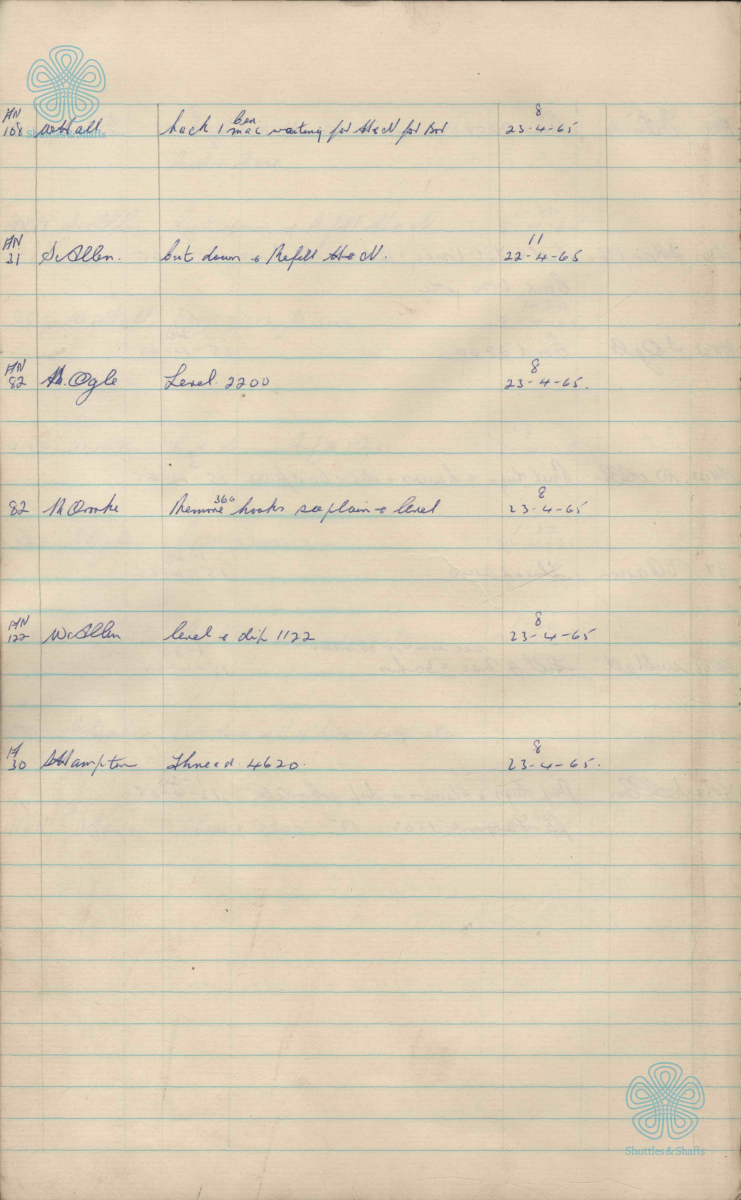 AN
108 W Hall
8
ben
hack 1 mac waiting for H & N for Bot
23-4-65
AN
31 S. Allen. Cut down & Refill H & N.
11
22-4-65
AN
82 Ogle Level 2200
8
23-4-65.
82 360
Remove hooks & level
8
23-4-65
AN
122 W. Allen level & dip 1122
8
23-4-65
30 Hampton Thread 4620.
8
23-4-65.
Shuttles & Shafts
Shuttles & Shafts